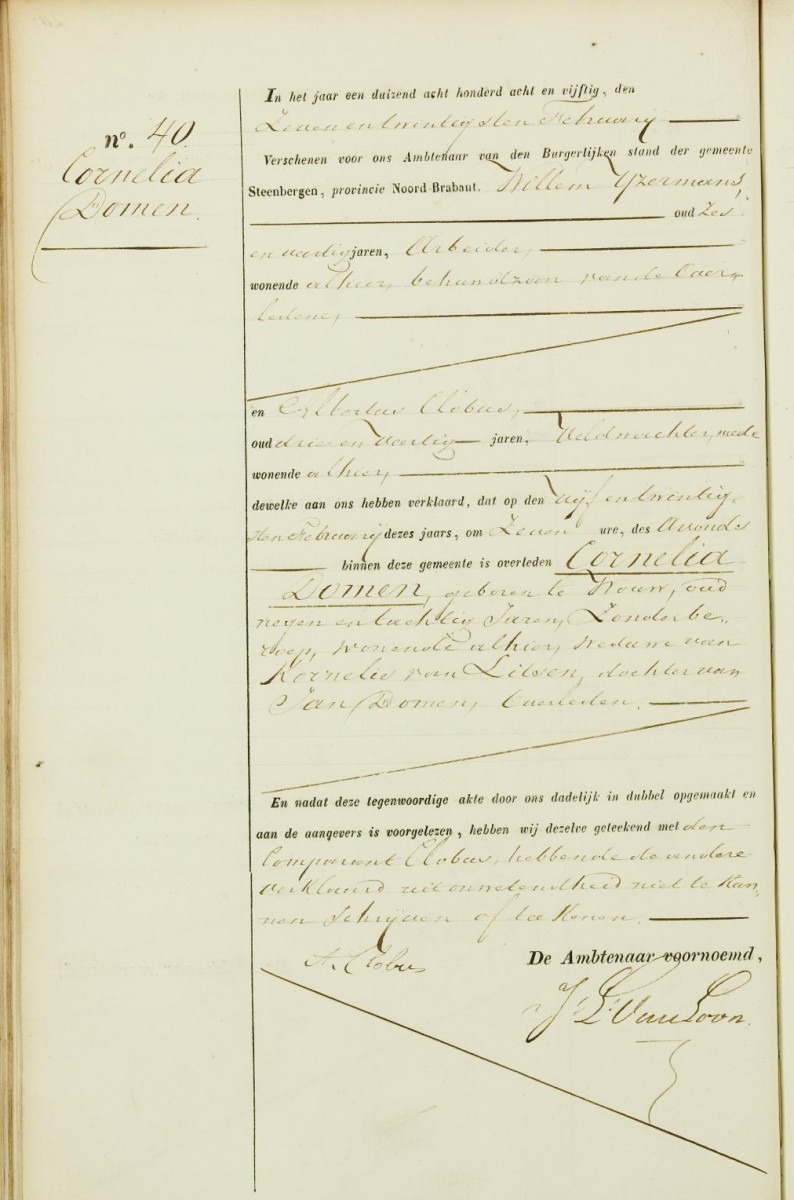 nº. 40.
Cornelia
Domen.
In het jaar een duizend acht honderd acht en vijftig, den
Zeven en twintigsten Februarij
Verschenen voor ons Ambtenaar van den Burgerlijken stand der gemeente
Steenbergen, provincie Noord-Brabant. Willem Yzermans,
oud Zes
en veertig jaren, Arbeider,
wonende alhier, behuwdzoon van de Over„
ledene,
en Albertus Clobus,
oud drie en Veertig jaren, Veldwachter, mede
wonende alhier,
dewelke aan ons hebben verklaard, dat op den Vijf en twintig„
sten Februarij dezes jaars, om Zeven ure, des Avonds
binnen deze gemeente is overleden Cornelia
Domen, geboren te Wouw, oud
negen en tachtig Jaren, Zonder be„
roep, wonende alhier, weduwe van
Kornelis van Litsen, dochter van
Jan Domen, Overleden.
En nadat deze tegenwoordige akte door ons dadelijk in dubbel opgemaakt en
aan de aangevers is voorgelezen, hebben wij dezelve geteekend met den
Comparant Clobus, hebbende de andere
verklaard uit onwetendheid niet te kun„
nen Schrijven of tee kenen.
A. Clobus
De Ambtenaar voornoemd,
J. L. Van Loon.